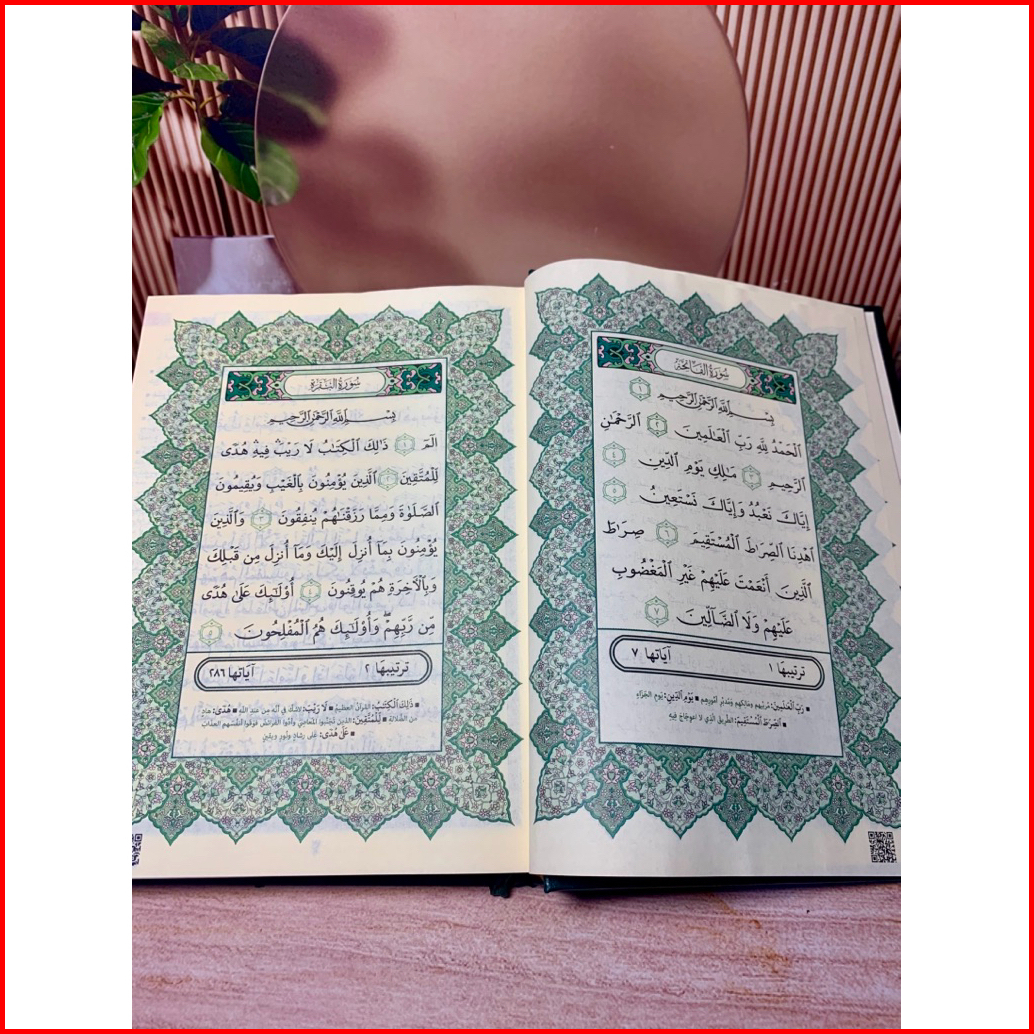 سُورَةُ الْفَاتِحَةِ
بِسْمِ ٱللَّهِ ٱلرَّحْمَٰنِ ٱلرَّحِيمِ ١
ٱلْحَمْدُ لِلَّهِ رَبِّ ٱلْعَٰلَمِينَ ٢ ٱلرَّحْمَٰنِ
ٱلرَّحِيمِ ٣ مَٰلِكِ يَوْمِ ٱلدِّينِ ٤
إِيَّاكَ نَعْبُدُ وَإِيَّاكَ نَسْتَعِينُ ٥
ٱهْدِنَا ٱلصِّرَٰطَ ٱلْمُسْتَقِيمَ ٦ صِرَٰطَ
ٱلَّذِينَ أَنْعَمْتَ عَلَيْهِمْ غَيْرِ ٱلْمَغْضُوبِ
عَلَيْهِمْ وَلَا ٱلضَّآلِّينَ ٧
ترتيبها ١ آياتها ٧
■ رَبِّ ٱلْعَٰلَمِينَ: مُربِّيهم ومَالِكِهم ومُدبِّر أمُورِهِم ■ يَوْمِ ٱلدِّينِ: يَوم الجَزَاءِ
■ ٱلصِّرَٰطَ ٱلْمُسْتَقِيمَ: الطَّرِيقَ الَّذِي لا اعوِجَاجَ فِيهِ
سُورَةُ الْبَقَرَةِ
بِسْمِ ٱللَّهِ ٱلرَّحْمَٰنِ ٱلرَّحِيمِ
الٓمٓ ١ ذَٰلِكَ ٱلْكِتَٰبُ لَا رَيْبَۛ فِيهِۛ هُدًى
لِّلْمُتَّقِينَ ٢ ٱلَّذِينَ يُؤْمِنُونَ بِٱلْغَيْبِ وَيُقِيمُونَ
ٱلصَّلَوٰةَ وَمِمَّا رَزَقْنَٰهُمْ يُنفِقُونَ ٣ وَٱلَّذِينَ
يُؤْمِنُونَ بِمَآ أُنزِلَ إِلَيْكَ وَمَآ أُنزِلَ مِن قَبْلِكَ
وَبِٱلْأٓخِرَةِ هُمْ يُوقِنُونَ ٤ أُوْلَٰٓئِكَ عَلَىٰ هُدًى
مِّن رَّبِّهِمْۖ وَأُوْلَٰٓئِكَ هُمُ ٱلْمُفْلِحُونَ ٥
ترتيبها ٢ آياتها ٢٨٦
■ ذَٰلِكَ ٱلْكِتَٰبُ: القرآنُ العظيمُ ■ لَا رَيْبَ: لاشكَّ في أنَّه مِن عندِ اللهِ ■ هُدًى: هادٍ
من الضَّلالةِ ■ لِّلْمُتَّقِينَ: الذينَ تجنَّبُوا المعاصيَ وأدَّوُا الفرائضَ فوَقَوْا أنفُسَهم العذابَ
■ عَلَىٰ هُدًى: عَلى رشادٍ ونُورٍ ويقينٍ